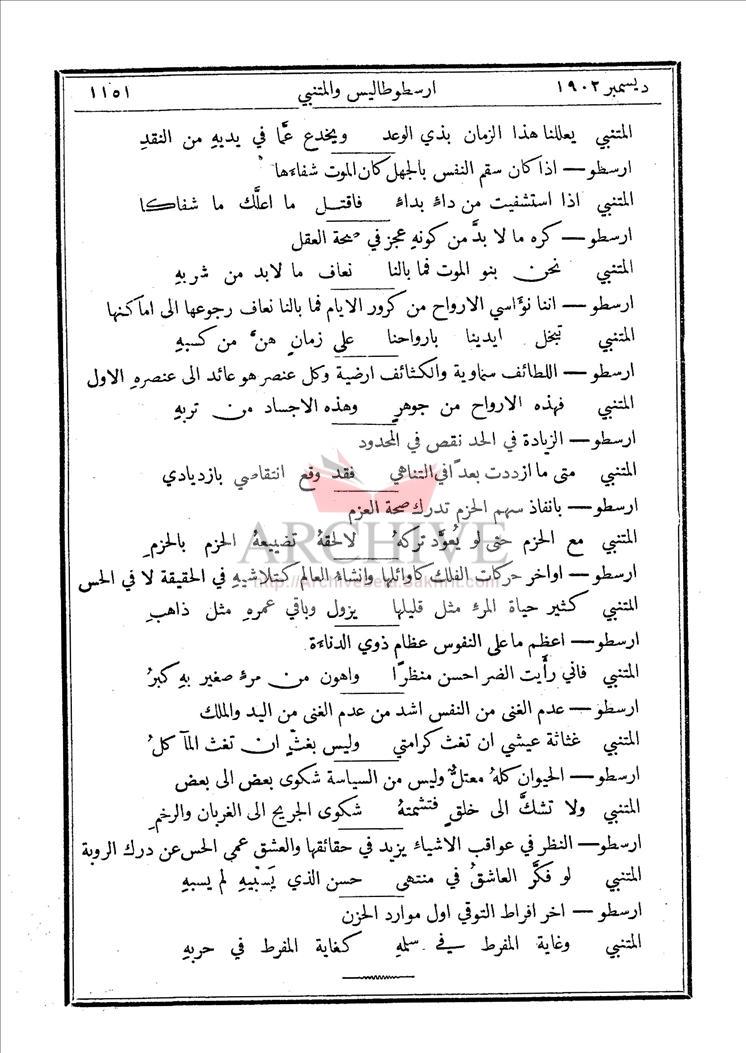 ديسمبر ١٩٠٢ ارسطوطاليس والمتنبي ١١٥١
المتنبي يعللنا هذا الزمان بذي الوعد ويخدع عمَّا في يديهِ من النقدِ
ارسطو — اذا كان سقم النفس بالجهل كان الموت شفاءَها
المتنبي اذا استشفيت من داءٍ بداءٍ فاقتل ما اعلَّك ما شفاكا
ارسطو — كره ما لا بدَّ من كونهِ عجز في صحة العقل
المتنبي نحن بنو الموت فما بالنا نعاف ما لابد من شربهِ
ارسطو — اننا نؤاسي الارواح من كرور الايام فما بالنا نعاف رجوعها الى اماكنها
المتنبي تبخل ايدينا بارواحنا على زمانٍ هنَّ من كسبهِ
ارسطو — اللطائف سماوية والكثائف ارضية وكل عنصر هو عائد الى عنصرهِ الاول
المتنبي فهذه الارواح من جوهرٍ وهذه الاجساد من تربهِ
ارسطو — الزيادة في الحد نقص في المحدود
المتنبي متى ما ازددت بعد في التناهي فقد وقع انتقاصي بازديادي
ارسطو — بانفاذ سهم الحزم تدرك صحة العزم
المتنبي مع الحزم حتى لو يُعوَّد تركهُ لالحقهُ تضييعهُ الحزم بالحزمِ
ارسطو — اواخر حركات الفلك كاوائلها وانشاءُ العالم كتلاشيهِ في الحقيقة لا في الحس
المتنبي كثير حياة المرءِ مثل قليلها يزول وباقي عمرهِ مثل ذاهبِ
ارسطو — اعظم ما على النفوس عظام ذوي الدناءة
المتنبي فاني رأَيت الضر احسن منظرًا واهون من مرءٍ صغير بهِ كبرُ
ارسطو — عدم الغنى من النفس اشد من عدم الغنى من اليد والملك
المتنبي غثاثة عيشي ان تغث كرامتي وليس بغثٍ ان تغث المآكلُ
ارسطو — الحيوان كلهُ معتلٌّ وليس من السياسة شكوى بعض الى بعض
المتنبي ولا تشكَّ الى خلقٍ فتشمتهُ شكوى الجريح الى الغربان والرخمِ
ارسطو — النظر في عواقب الاشياء يزيد في حقائقها والعشق عمى الحس عن درك الروية
المتنبي لو فكَّر العاشقُ في منتهى حسن الذي يَسْبيهِ لم يسبهِ
ارسطو — اخر افراط التوقي اول موارد الحزن
المتنبي وغاية المفرط في سلمهِ كغاية المفرط في حربهِ
ARCHIVE
http://Archivebeta.Sakhrit.com